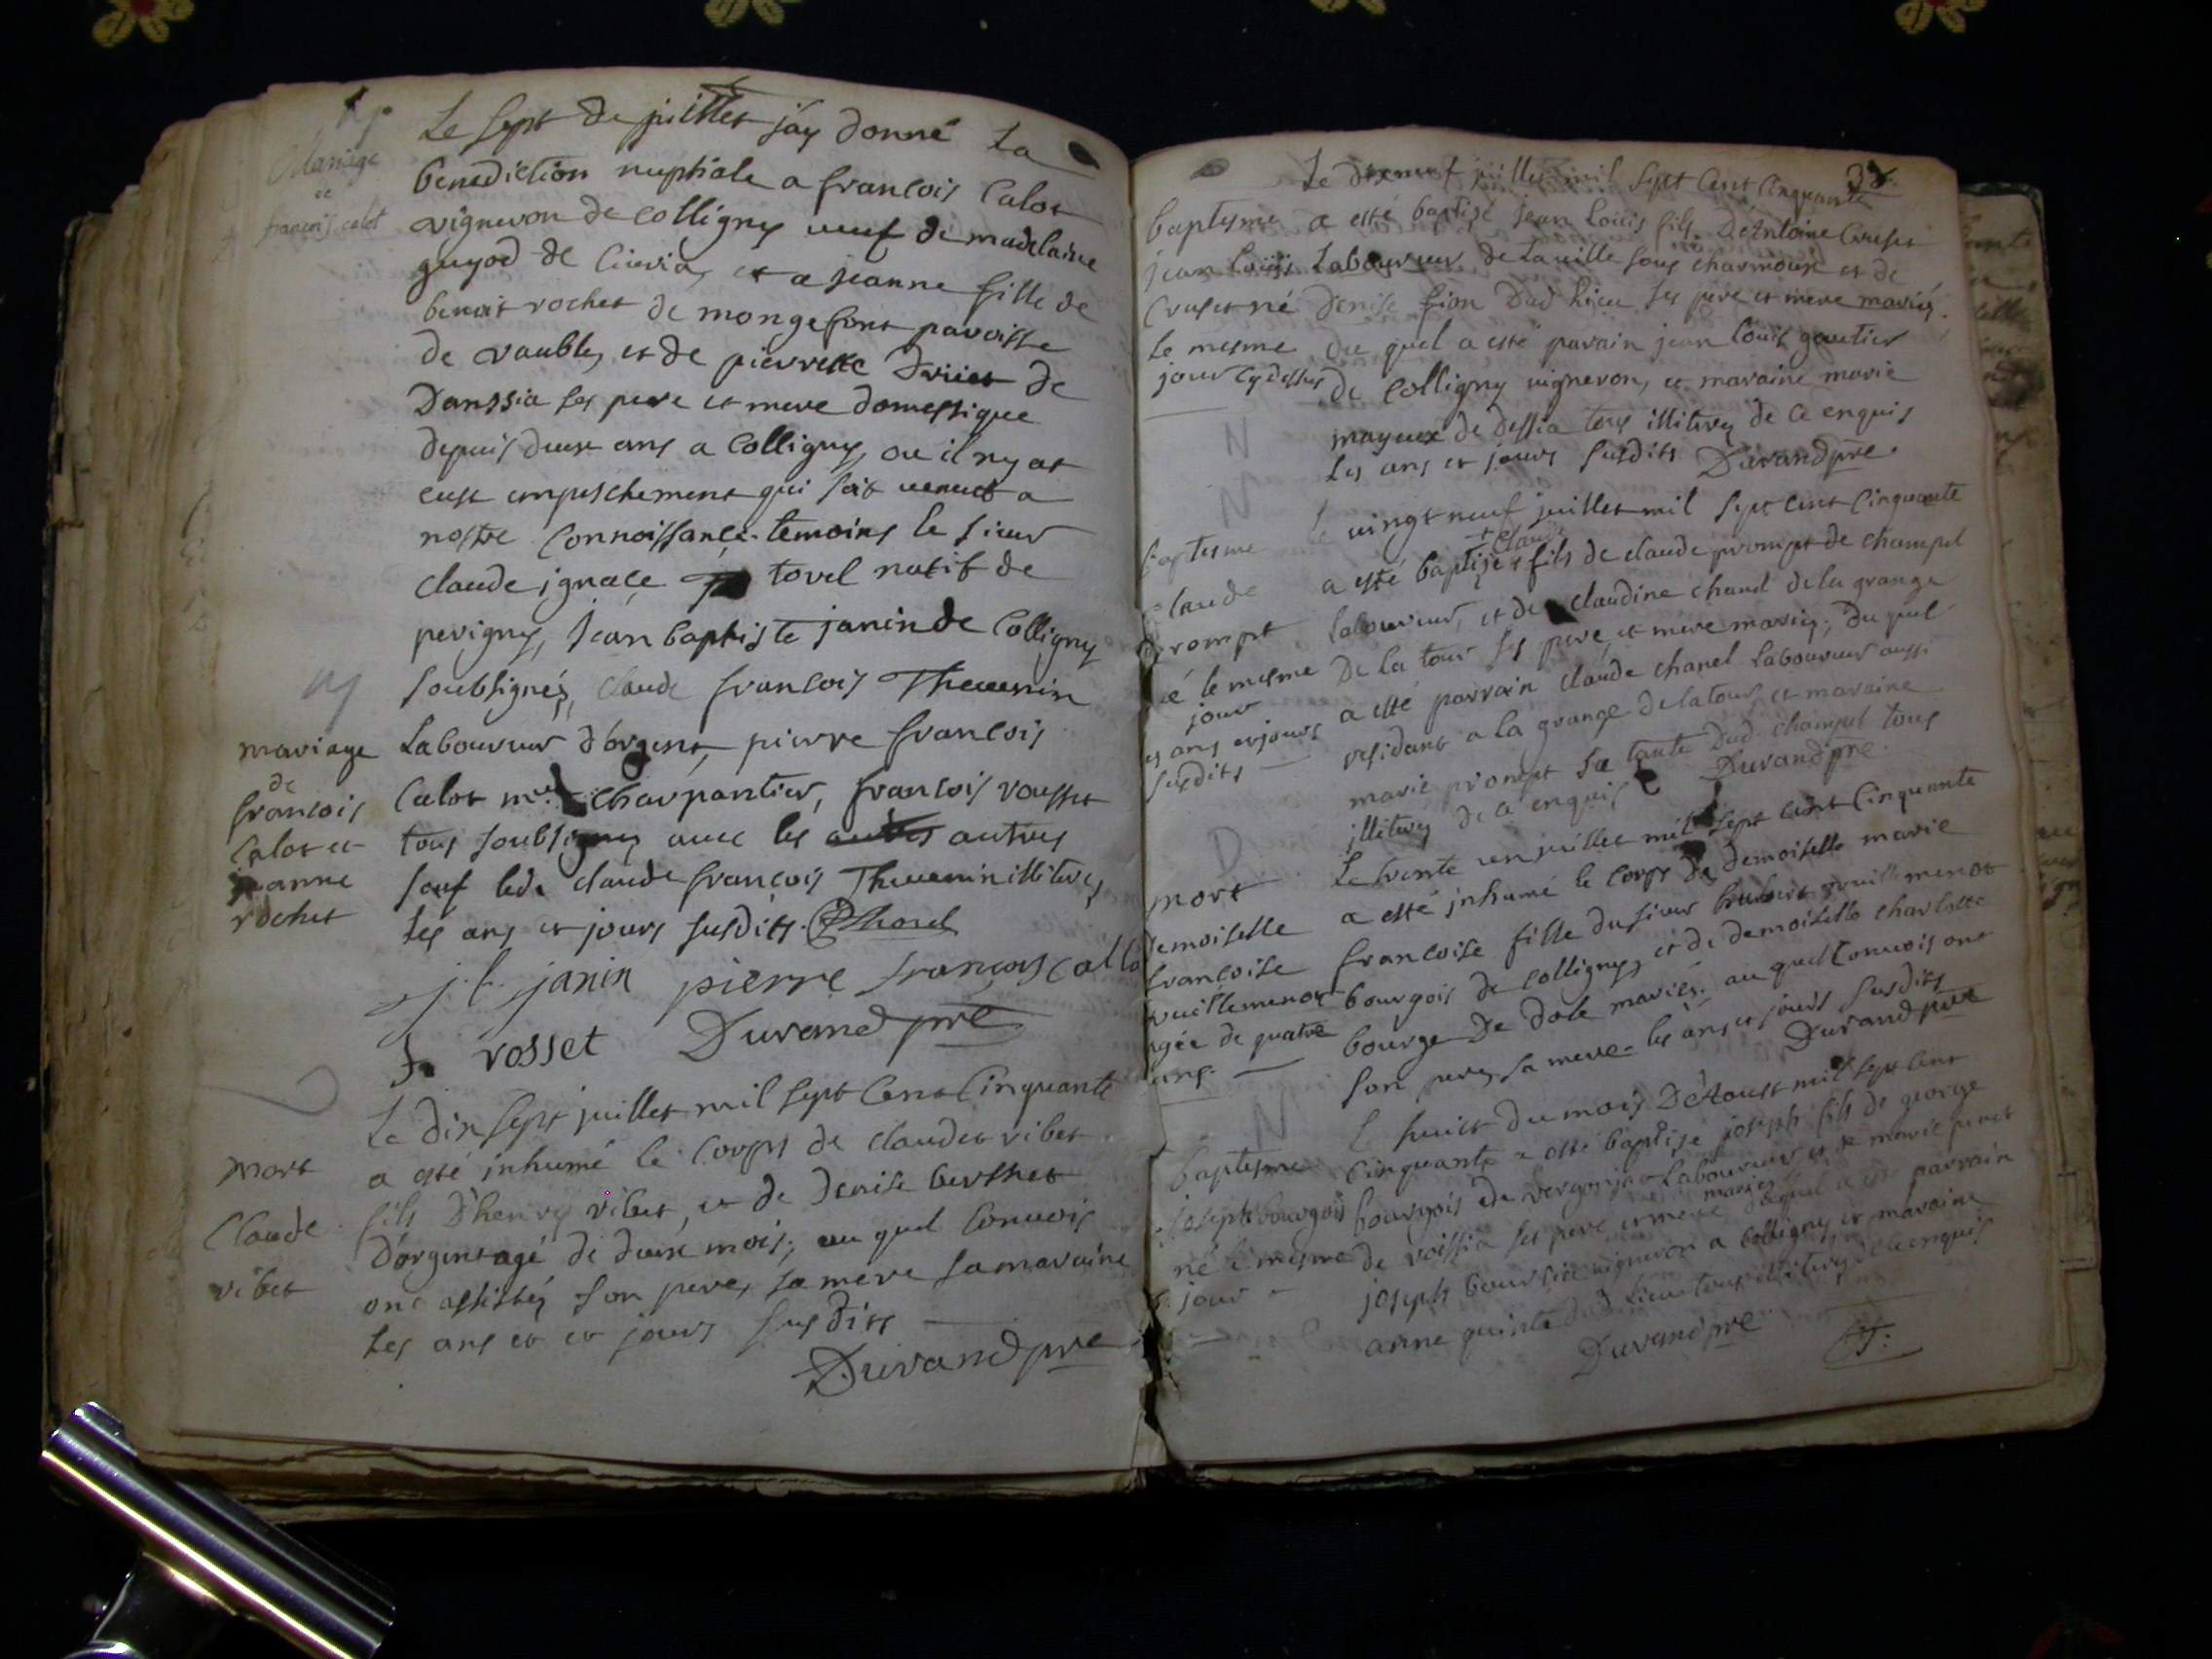 Mariage
de
francois calot
Le sept de juillet jáy donné La
benediction nuptiale a francois Calot
vigneron de colligny veuf de madelaine
guyod de Civria, et a jeanne fille de
benoit rochet de mongefont paroisse
de vaubles, et de pierrette de
Danssia ses pere et mere domestique
depuis deux ans a Colligny, ou il ny at
eust empeschement qui soit venut a
nostre Connoissance. temoins le sieur
claude ignace torel natif de
perigny, Jean baptiste janin de Colligny
soubsignés, claude francois Thevenin
Laboureur d'orgent, pierre francois
Calot charpantier, francois rousset
tous soubsignes avec les autres autres
sauf led. claude francois Thevenin illiteres
les ans et jours susdits.
mariage
de
francois
Calot et
jeanne
rochet
j. b. janin pierre françois callo
f. rosset Durand pre
Le dix sept juillet mil sept Cent Cinquante
a esté inhumé le Corps de claudet vibet
fils D'henry vibet, et de denise berthet
D'orgent agé de deux mois; au quel Convois
ont assistés son pere, sa mere sa maraine
les ans et et jours susdits
mort
Claude
vibet
Durand pre
Le dixneuf juillet mil sept Cent Cinquante
baptesme a esté baptisé jean Louis fils D'Antoine Cruset
jean Louis Laboureur de La ville sous charmoux et de
Cruset né denise fion Dud Lieu ses pere et mere mariés.
le mesme du quel a esté parain jean Louis gautier
jour cydessus de Colligny vigneron, et maraine marie
mayeux de dessia tous illiteres de ce enquis
les ans et jours susdits Durand pre.
baptesme le vingt neuf juillet mil sept cent Cinquante
+ claude
claude a esté baptisé + fils de claude prompt de champel
prompt laboureur, et de claudine chanel de la grange
né le mesme De la tour ses pere et mere mariés; du quel
jour a esté parrain claude chanel Laboureur aussi
les ans et jours residant a la grange de la tour, et maraine
susdits marie prompt sa tante dud. champel tous
illiteres de ce enquis Durand pre.
mort Le trente un juillet mil sept cent Cinquante
demoiselle a esté inhumé le corps de demoiselle marie
francoise francoise fille du sieur vuillemenot
vuillemenot bourgois de Colligny, et de demoiselle charlotte
agée de quatre bourge De dole mariés. au quel Convois ont
ans. son pere, sa mere. les ans et jours susdits
Durand pre
L huict du mois D'Aoust mil sept cent
baptesme Cinquante a esté baptisé joseph fils de george
joseph bourgois bourgois de vergongeat Laboureur et de marie
mariés
né le mesme de voissia ses pere et mere duquel a été parrain
jour joseph vigneron a Colligny et maraine
anne dud Lieu tous illiteres de ce enquis
Durand pre